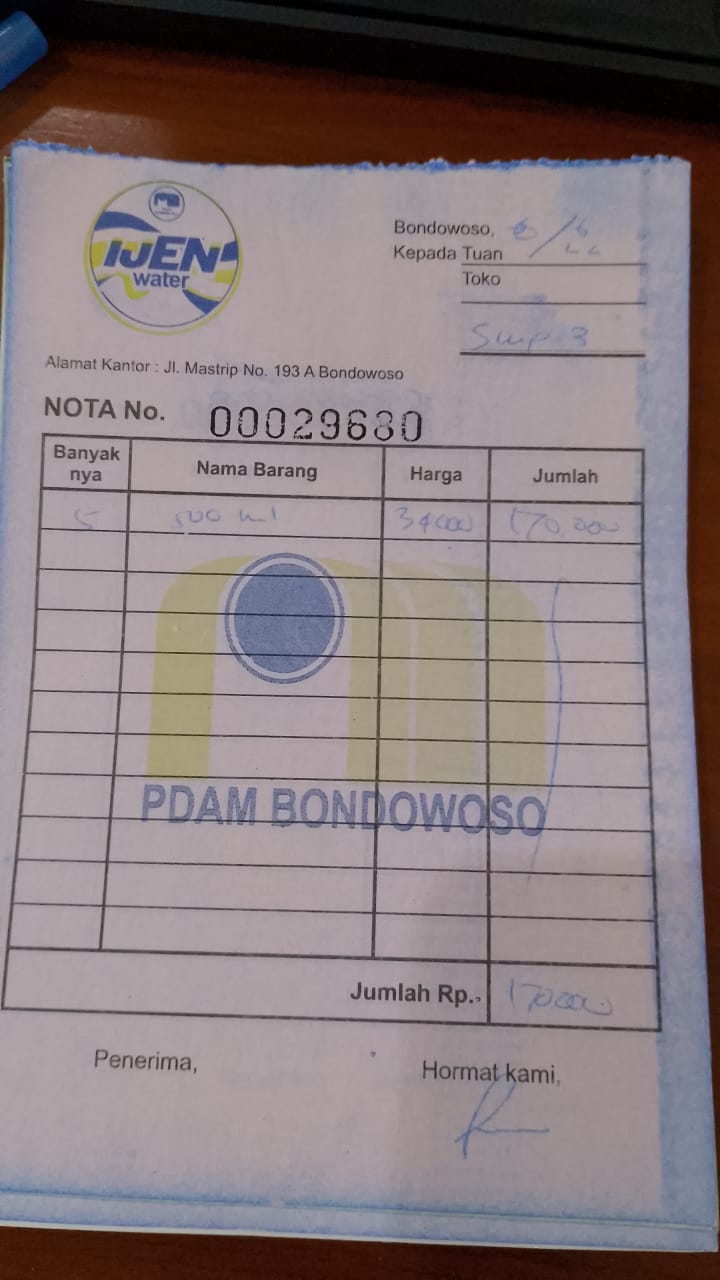 IJEN
water
Bondowoso, 6/6
Kepada Tuan
Toko
Smp 3
Alamat Kantor : Jl. Mastrip No. 193 A Bondowoso
NOTA No. 00029680
Banyak nya Nama Barang Harga Jumlah
5 500 ml 34000 170.000
PDAM BONDOWOSO
Jumlah Rp. 170000
Penerima, Hormat kami,